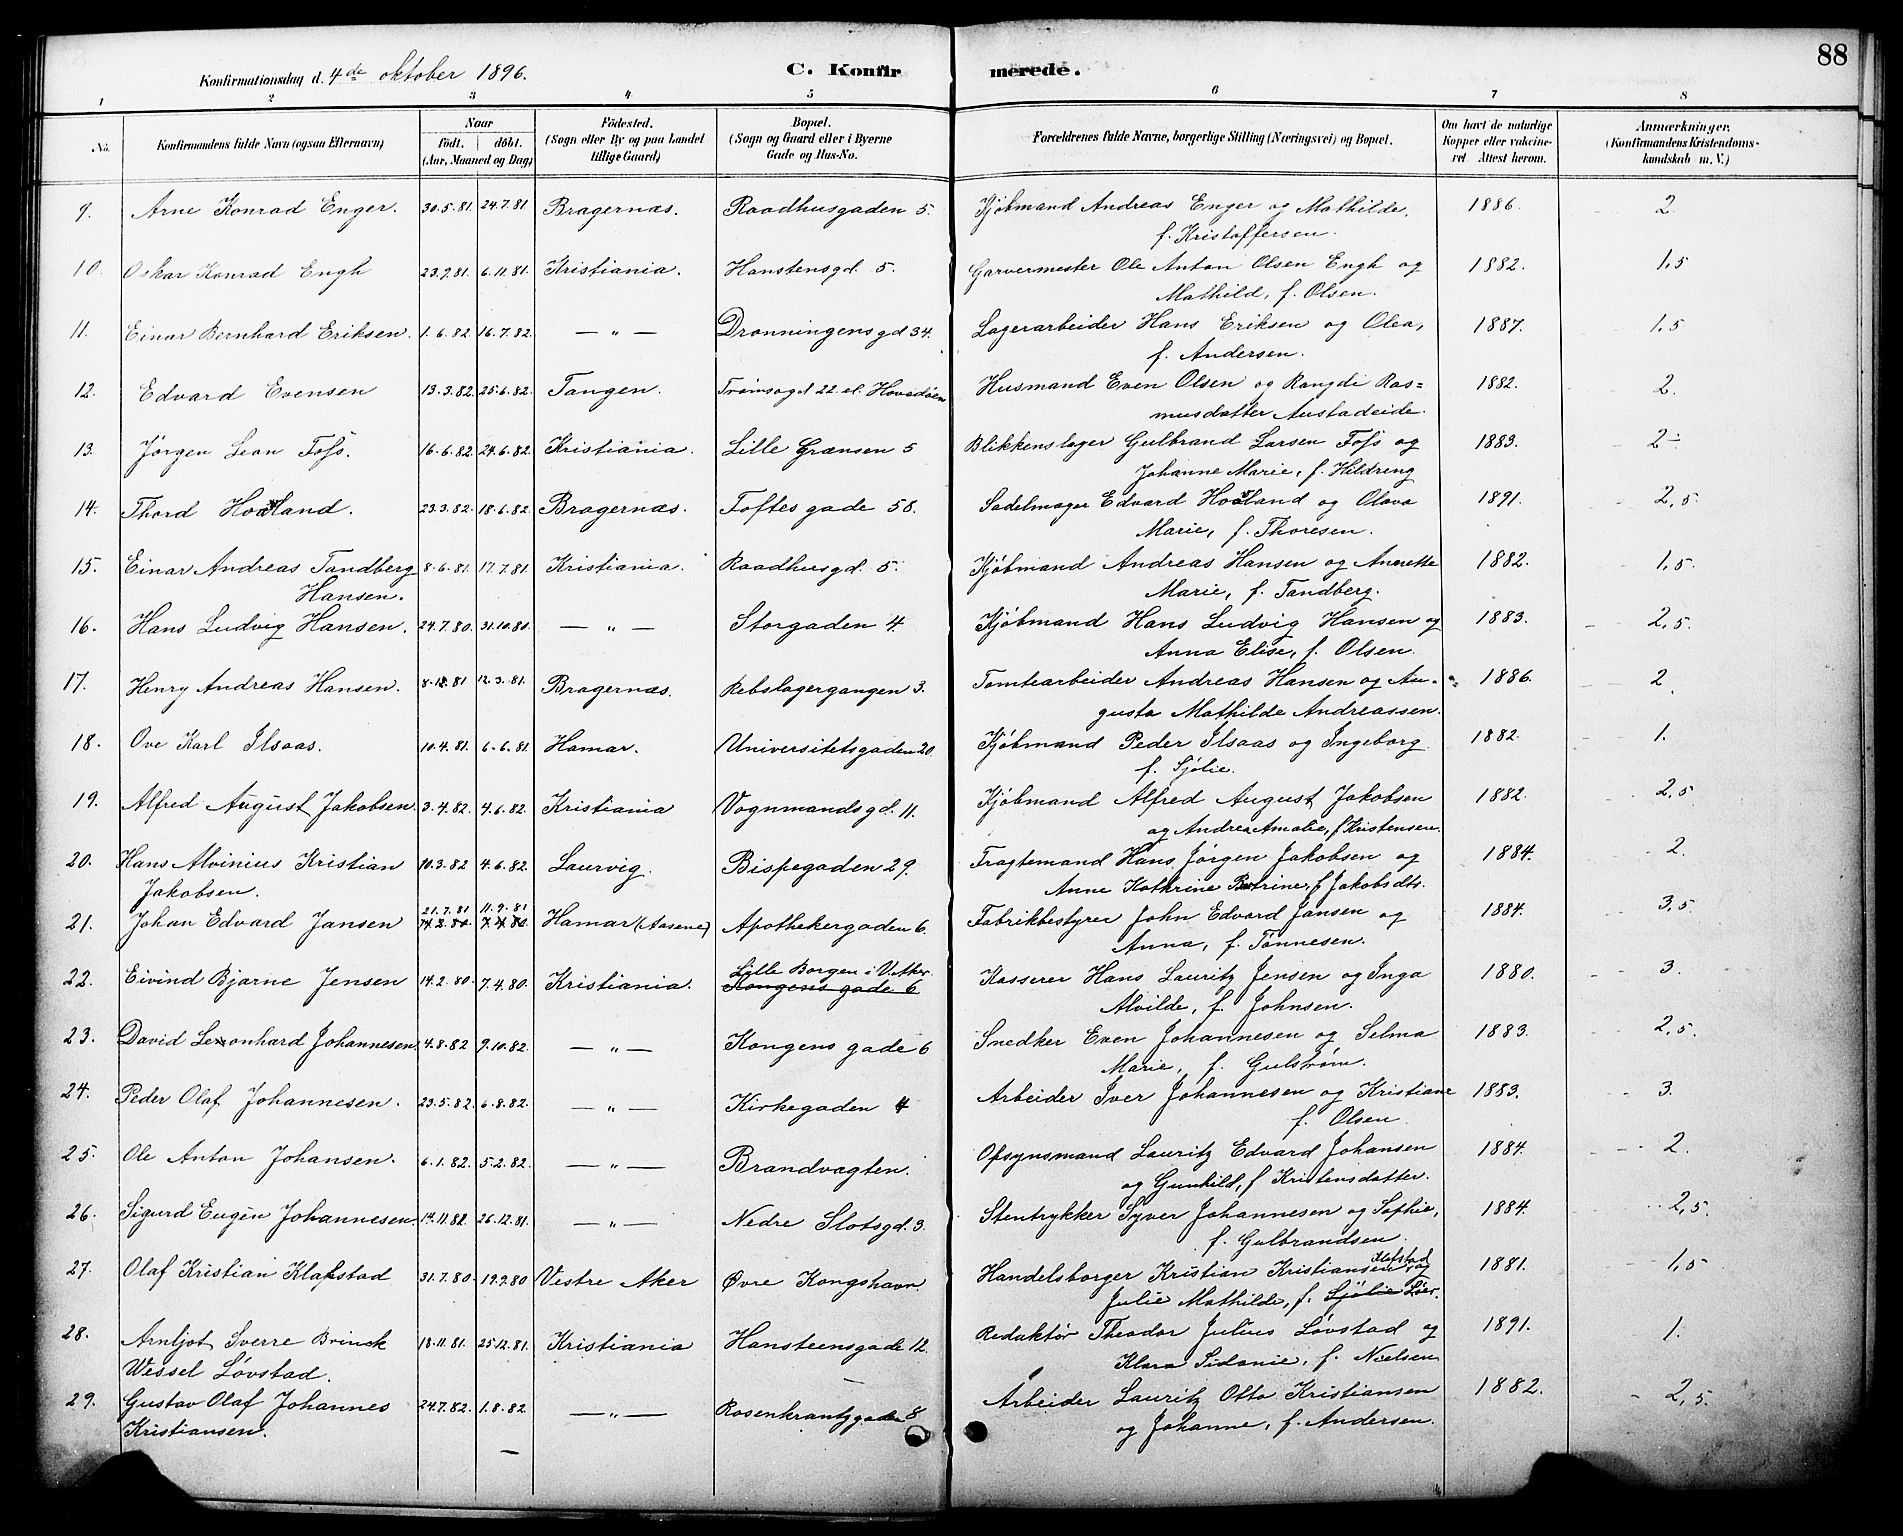 88
Konfirmationsdag d. 4de oktober 1896. C. Konfir merede.
1 2 3 4 5 6 7 8
No. Konfirmandens fulde Navn (ogsaa Efternavn) Naar födt. döbt. (Aar, Maaned og Dag) Födested. (Sogn eller By og paa Landet tillige Gaard) Bopæl. (Sogn og Gaard eller i Byerne Gade og Hus-No. Forældrenes fulde Navne, borgerlige Stilling (Næringsvei) og Bopæl. Om havt de naturlige Kopper eller vakcineret. Attest herom. Anmærkninger. (Konfirmandens Kristendomskundskab m. V.)
9. Arne Konrad Enger. 30.5.81. 24.7.81 Bragernæs. Raadhusgaden 5. Kjøbmand Andreas Enger og Mathilde, 1886. 2.
f. Kristoffersen.
10. Oskar Konrad Engh 23.9.81. 6.11.81. Kristiania. Hanstensgd. 5. Garvermester Ole Anton Olsen Engh og 1882. 1,5
Mathild, f. Olsen.
11. Einar Bernhard Eriksen. 1.6.82. 16.7.82. — „ — Dronningensgd 34. Lagerarbeider Hans Eriksen og Olea, 1887. 1,5
f. Andersen.
12. Edvard Evensen 13.3.82. 25.6.82. Tangen. Tromsøgd 22. el. Hovedøen Husmand Even Olsen og Rangdi Ras= 1882. 2.
musdatter Austadeide.
13. Jørgen Leon Foss. 16.6.82. 24.6.82. Kristiania. Lille Grænsen 5 Blikkenslager Gulbrand Larsen Foss og 1883. 2÷
Johanne Marie, f. Hildreng
14. Thord Hovland. 23.3.82. 18.6.82. Bragernæs. Toftes gade 58. Sadelmager Edvard Hovland og Olava 1891. 2,5
Marie, f. Thoresen.
15. Einar Andreas Tandberg 8.6.81. 17.7.81. Kristiania. Raadhusgd. 5. Kjøbmand Andreas Hansen og Annette 1882. 1,5.
Hansen. Marie, f. Tandberg.
16. Hans Ludvig Hansen. 24.7.80. 31.10.80. — „ — Storgaden 4. Kjøbmand Hans Ludvig Hansen og 1883. 2,5.
Anna Elise, f. Olsen.
17. Henry Andreas Hansen. 12.3.81. Bragernæs. Rebslagergangen 3. Tomtearbeider Andreas Hansen og Au- 1886. 2.
gusta Mathilde Andreassen.
18. Ove Karl Ilsaas. 10.4.81. 6.6.81. Hamar. Universitetsgaden 20. Kjøbmand Peder Ilsaas og Ingeborg 1882. 1.
f. Sjølie.
19. Alfred August Jakobsen 3.4.82. 4.6.82. Kristiania Vognmandsgd. 11. Kjøbmand Alfred August Jakobsen 1882. 2,5
og Andrea Amalie, f. Kristensen.
20. Hans Alvinius Kristian 10.3.82 4.6.82. Laurvig. Bispegaden 29. Fragtemand Hans Jørgen Jakobsen og 1884. 2.
Jakobsen. Anne Kathrine Petrine, f. Jakobsdtr.
21.7.81 11.9.81
21. Johan Edvard Jansen 14.2.80. 7.4.80. Hamar (Aasene) Apothekergaden 6. Fabrikbestyrer John Edvard Jansen og 1884. 3,5.
Anna, f. Tønnesen.
Lille Borgen i V.Aker.
22. Eivind Bjarne Jensen 14.2.80. 7.4.80. Kristiania. Kongens gade 6 Kasserer Hans Lauritz Jensen og Inga 1880. 3.
Alvilde, f. Johnsen.
23. David Leonhard Johannesen 4.8.82 9.10.82. — „ — Kongens gade 6 Snedker Even Johannesen og Selma 1883. 2,5.
Marie, f. Gulstrøm.
24. Peder Olaf Johannesen. 23.5.82. 6.8.82. — „ — Kirkegaden 4 Arbeider Iver Johannesen og Kristiane 1883. 3.
f. Olsen.
25. Ole Anton Johansen. 6.1.82. 5.2.82. — „ — Brandvagten. Opsynsmand Lauritz Edvard Johansen 1884. 2.
og Gunhild, f. Kristensdatter.
26. Sigurd Eugén Johannesen 26.12.81. — „ — Nedre Slotsgd. 3. Stentrykker Syver Johannesen og Sophie, 1884. 2,5.
f. Gulbrandsen.
Klafstad
27. Olaf Kristian Klafstad 31.7.80. 19.9.80 Vestre Aker Øvre Kongshavn. Handelsborger Kristian Kristiansen og 1881. 1,5
Julie Mathilde, f. Sjölie
28. Arnljot Sverre Brinck 18.11.81. 25.12.81. Kristiania Hansteensgade 12. Redaktør Theodor Julius Løvstad og 1891. 1.
Wessel Løvstad. Klara Sidonie, f. Nielsen
29. Gustav Olaf Johannes 24.7.82. 1.8.82. — „ — Rosenkrantzgaden 8. Arbeider Lauritz Otto Kristiansen 1882. 2,5.
Kristiansen. og Johanne, f. Andersen.